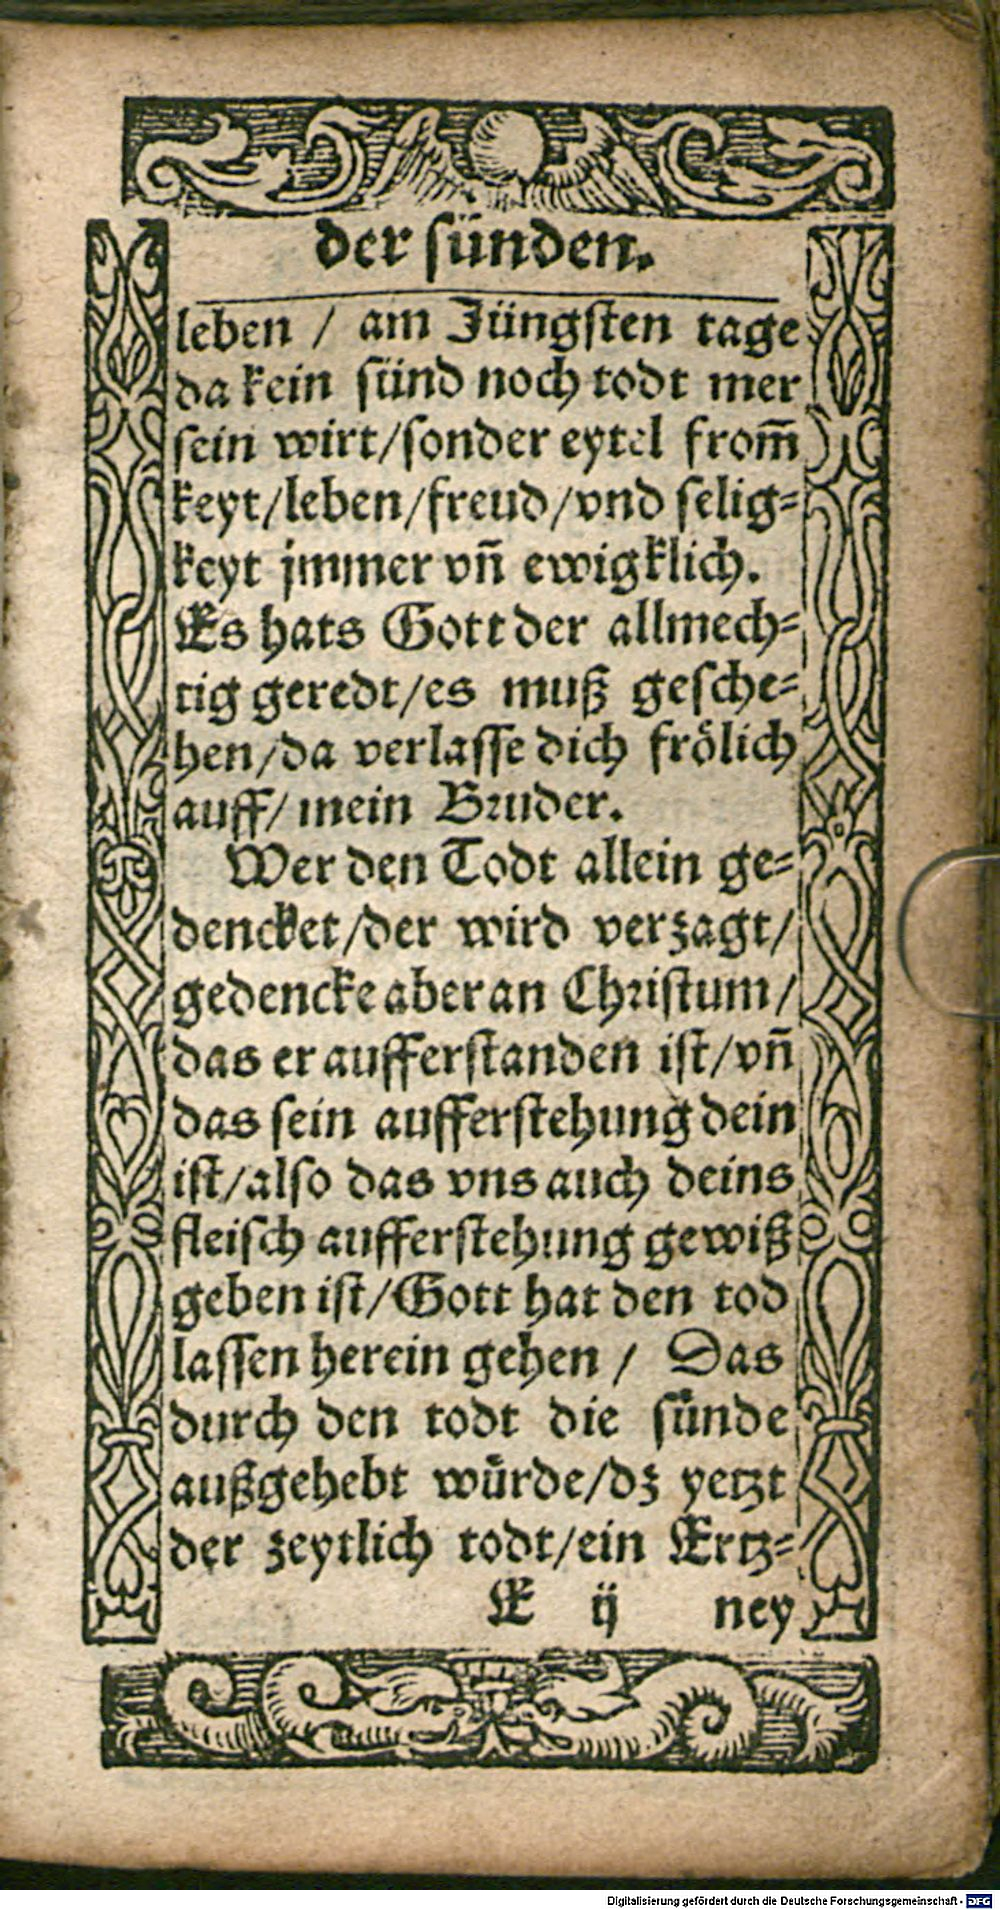 der sünden.
leben / am Jüngsten tage
da kein sünd noch todt mer
sein wirt/sonder eytel from̄
keyt/leben/freud/vnd selig=
keyt jmmer vn̄ ewigklich.
Es hats Gott der allmech=
tig geredt/es muß gesche=
hen/da verlasse dich frölich
auff/mein Bruder.
Wer den Todt allein ge=
dencket/der wird verzagt/
gedencke aber an Christum/
das er aufferstanden ist/vn̄
das sein aufferstehung dein
ist/also das vns auch deins
fleisch aufferstehung gewiß
geben ist/Gott hat den tod
lassen herein gehen / Das
durch den todt die sünde
außgehebt würde/dz yetzt
der zeytlich todt/ein Ertz=
E ij ney
Digitalisierung gefördert durch die Deutsche Forschungsgemeinschaft - DFG